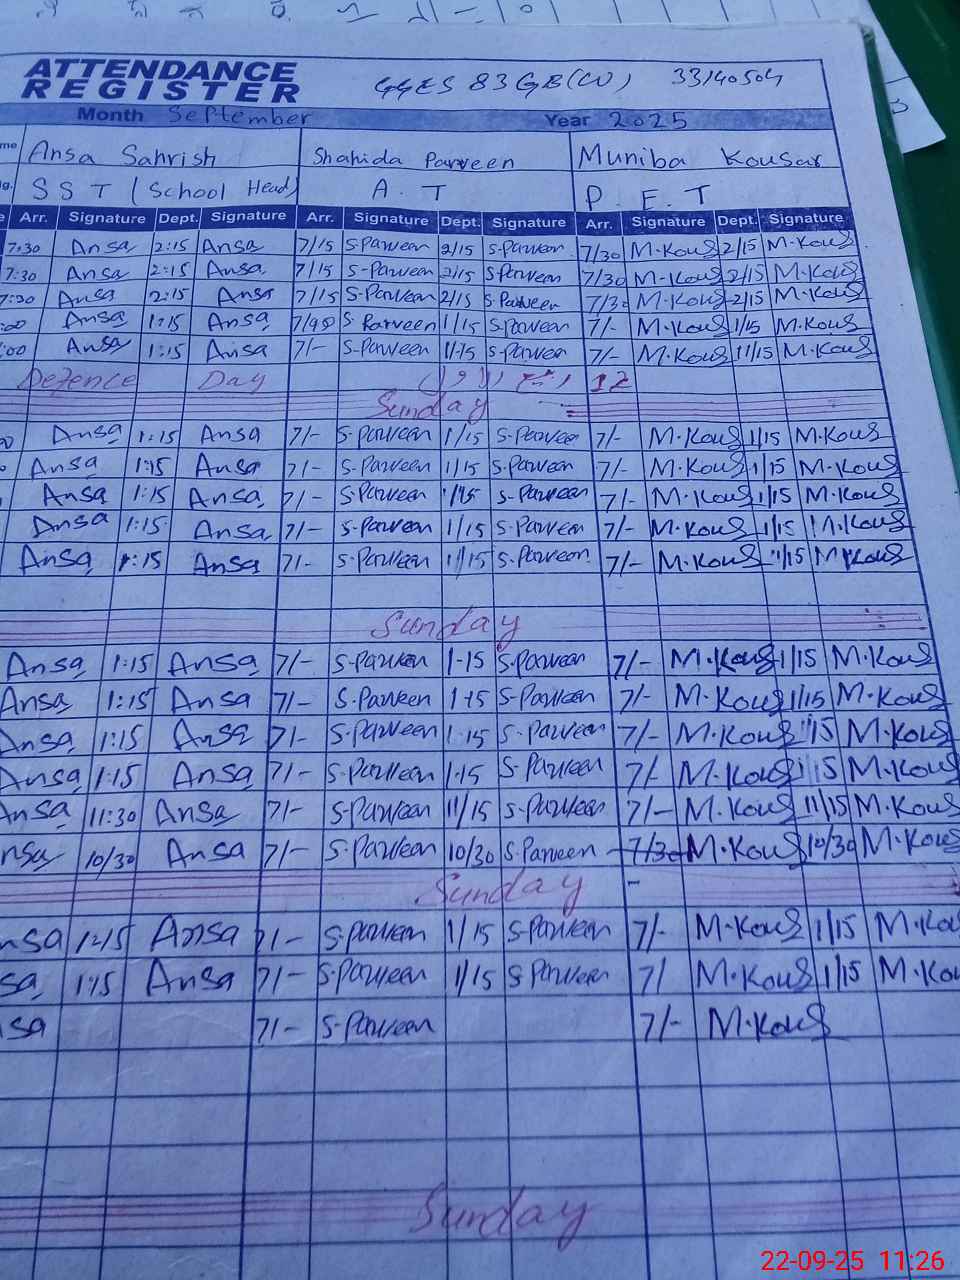 ATTENDANCE
REGISTER GGES 83 GB(W) 33140504
Month September Year 2025
me Ansa Sahrish Shahida Parveen Muniba Kousar
g. SST (School Head) A.T P.E.T
e Arr. Signature Dept. Signature Arr. Signature Dept. Signature Arr. Signature Dept. Signature
7:30 Ansa 2:15 Ansa 7/15 S-Parveen 2/15 S-Parveen 7/30 M.Kous 2/15 M.Kous
7:30 Ansa 2:15 Ansa 7/15 S-Parveen 2/15 S-Parveen 7/30 M.Kous 2/15 M.Kous
7:30 Ansa 2:15 Ansa 7/15 S-Parveen 2/15 S-Parveen 7/30 M.Kous 2/15 M.Kous
:00 Ansa 1:15 Ansa S-Parveen 1/15 S-Parveen 7/- M.Kous 1/15 M.Kous
:00 Ansa 1:15 Ansa 7/- S-Parveen 1/15 S-Parveen 7/- M.Kous 1/15 M.Kous
Defence Day 12
Sunday
Ansa 1:15 Ansa 7/- S-Parveen 1/15 S-Parveen 7/- M.Kous 1/15 M.Kous
Ansa 1:15 Ansa 7/- S-Parveen 1/15 S-Parveen 7/- M.Kous 1/15 M.Kous
Ansa 1:15 Ansa 7/- S-Parveen 1/15 S-Parveen 7/- M.Kous 1/15 M.Kous
Ansa 1:15 Ansa 7/- S-Parveen 1/15 S-Parveen 7/- M.Kous 1/15 M.Kous
Ansa 1:15 Ansa 7/- S-Parveen 1/15 S-Parveen 7/- M.Kous 1/15 M.Kous
Sunday
Ansa 1:15 Ansa 7/- S-Parveen 1-15 S-Parveen 7/- M.Kous 1/15 M.Kous
Ansa 1:15 Ansa 7/- S-Parveen 1-15 S-Parveen 7/- M.Kous 1/15 M.Kous
Ansa 1:15 Ansa 7/- S-Parveen 1-15 S-Parveen 7/- M.Kous 1/15 M.Kous
Ansa 1:15 Ansa 7/- S-Parveen 1-15 S-Parveen 7/- M.Kous 1/15 M.Kous
Ansa 11:30 Ansa 7/- S-Parveen 11/15 S-Parveen 7/- M.Kous 11/15 M.Kous
nsa 10/30 Ansa 7/- S-Parveen 10/30 S-Parveen 7/30 M.Kous 10/30 M.Kous
Sunday -
nsa 1:15 Ansa 7/- S-Parveen 1/15 S-Parveen 7/- M.Kous 1/15 M.Kou
sa 1:15 Ansa 7/- S-Parveen 1/15 S-Parveen 7/ M.Kous 1/15 M.Kou
sa 7/- S-Parveen 7/- M.Kous
Sunday
22-09-25 11:26